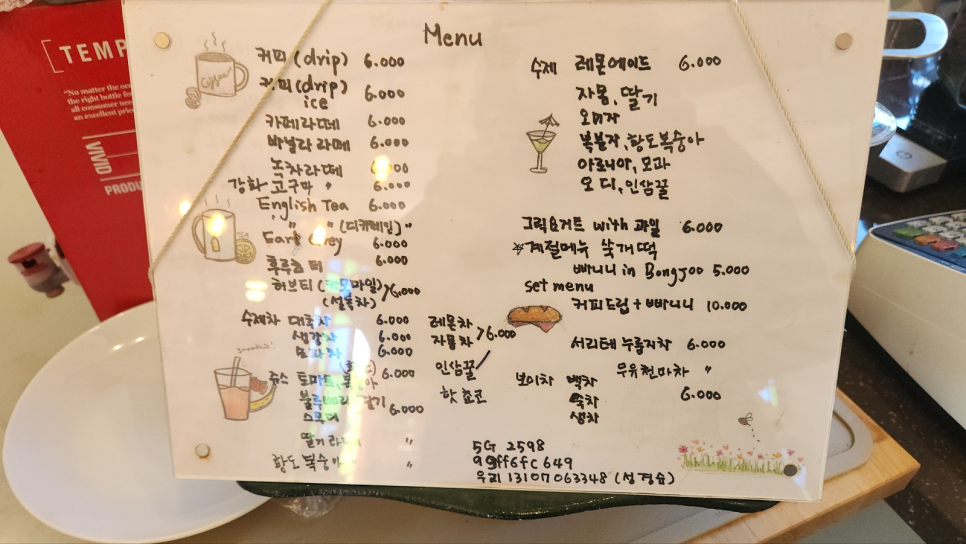 [TEMP
"No matter the oc
the right bottle fo
all consumer nee
an excellent price
VIVID
PRODU
Menu
커피 (drip) 6.000
커피 (drip) ice 6.000
카페라떼 6.000
바닐라 라떼 6.000
녹차라떼 6.000
강화 고구마 〃 6.000
English Tea 6.000
〃 〃 (디카페인) 〃
Earl Grey 6.000
후루츠 티 6.000
허브티 (카모마일) 6.000
(설록차)
수제차 대추차 6.000
생강차 6.000
모과차 6.000
레몬차 >6.000
자몽차
인삼꿀
핫쵸코
smoothie!
쥬스 토마토, 6.000
블루베리 딸기 6.000
스무디
딸기 라떼 〃
황도 복숭아 〃
수제 레몬에이드 6.000
자몽, 딸기
오미자
복분자, 황도복숭아
아로니아, 모과
오디, 인삼꿀
그릭요거트 with 과일 6.000
※계절메뉴 쑥개떡
빠니니 in Bongjoo 5.000
set menu
커피드립 + 빠니니 10.000
서리태 누룽지차 6.000
우유천마차 〃
보이차 백차 6.000
숙차
생차
5G 2598
99ff6fc649
우리 13107063348 (성경숙)
Coffee
TEA